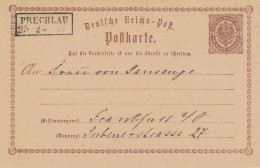 PRECHLAU
25 2
Deutsche Reichs-Post.
Postkarte.
Auf die Vorderseite ist nur die Adresse zu schreiben.
An Frau von
(Bestimmungsort) Frankfurt a/O
(Wohnung) Gubenerstrasse 27